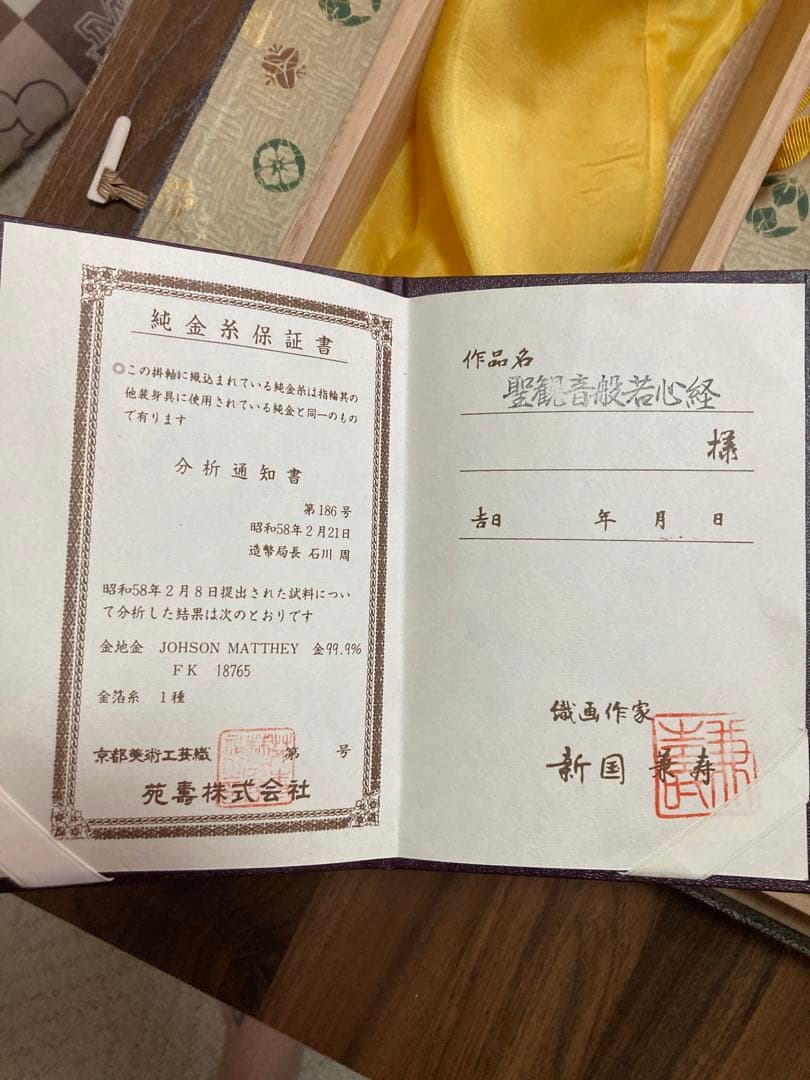 純金糸保証書
◎この掛軸に織込まれている純金糸は指輪其の
他装身具に使用されている純金と同一のもの
で有ります
分析通知書
第186号
昭和58年2月21日
造幣局長 石川 周
昭和58年2月8日提出された試料につい
て分析した結果は次のとおりです
金地金 JOHSON MATTHEY 金99.9%
FK 18765
金箔糸 1種
京都美術工芸織 第 号
苑壽株式会社
作品名
聖観音般若心経
様
吉日 年 月 日
織画作家
新国 兼寿